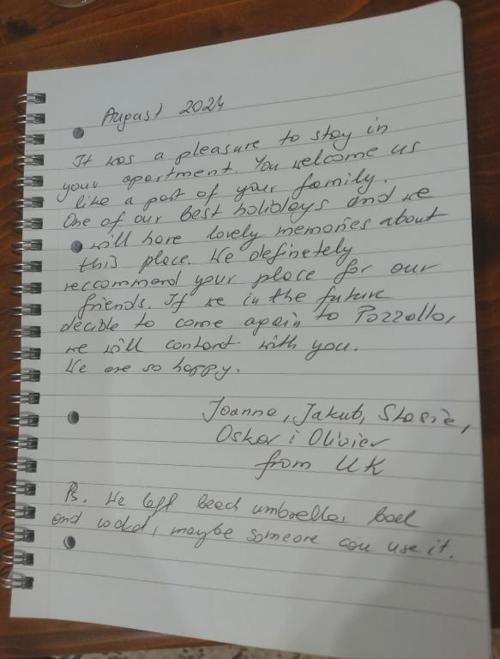 August 2024
It was a pleasure to stay in
your apartment. You welcome us
like a part of your family.
One of our best holidays and we
will have lovely memories about
this place. We definetely
reccommend your place for our
friends. If we in the future
decide to come again to Pozzallo,
we will contact with you.
We are so happy.
Joanna, Jakub, Stasie,
Oskar i Olivier
from UK
Ps. We left beach umbrella,
and, maybe someone can use it.